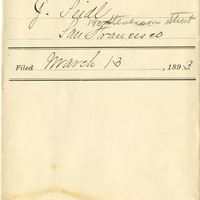 J. Seidl
190 Stevenson Street
San Francisco
Filed March 13, 1893